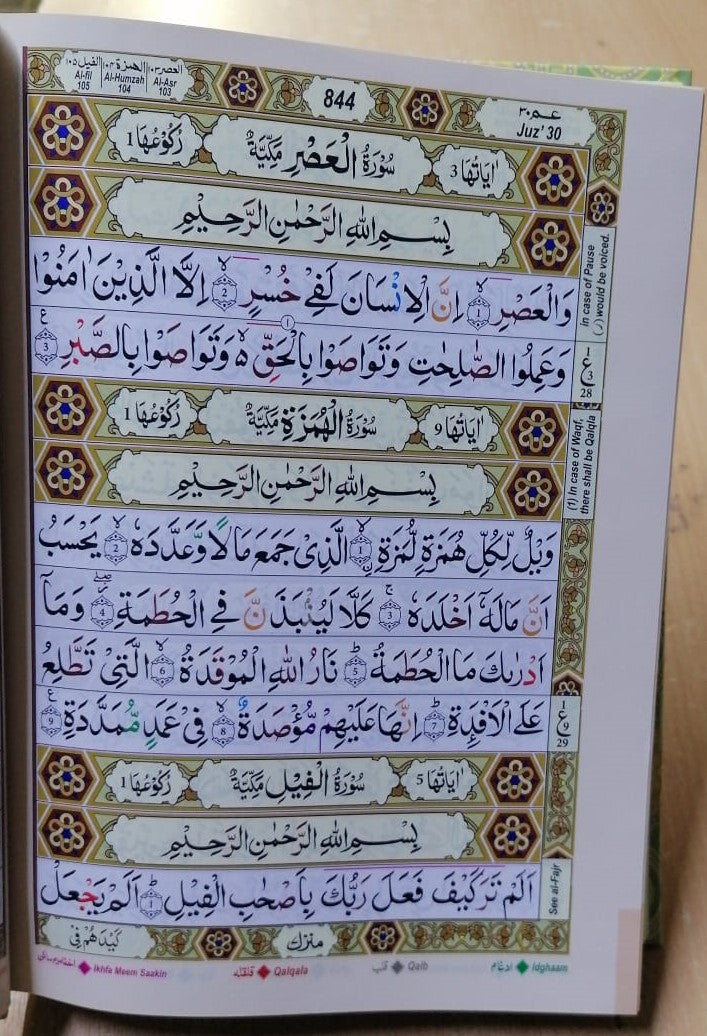 الفيل ١٠٥ الهمزة ١٠٤ العصر ١٠٣
Al-fil 105 Al-Humzah 104 Al-Asr 103
844
عم ٣٠
Juz' 30
اٰيَاتُهَا 3 سُوْرَةُ الْعَصْرِ مَكِّيَّةٌ رُكُوْعُهَا 1
بِسْمِ اللهِ الرَّحْمٰنِ الرَّحِيْمِ
وَالْعَصْرِ ۙ 1 اِنَّ الْاِنْسَانَ لَفِيْ خُسْرٍ ۙ 2 اِلَّا الَّذِيْنَ اٰمَنُوْا
وَعَمِلُوا الصّٰلِحٰتِ وَتَوَاصَوْا بِالْحَقِّ ۵ وَتَوَاصَوْا بِالصَّبْرِ 3
In case of Pause
(ر) would be voiced.
ع 3 28
(1) In case of Waqf,
there shall be Qalqla
اٰيَاتُهَا 9 سُوْرَةُ الْهُمَزَةِ مَكِّيَّةٌ رُكُوْعُهَا 1
بِسْمِ اللهِ الرَّحْمٰنِ الرَّحِيْمِ
وَيْلٌ لِّكُلِّ هُمَزَةٍ لُّمَزَةِ ۙ 1 الَّذِيْ جَمَعَ مَالًا وَّعَدَّدَهٗ ۙ 2 يَحْسَبُ
اَنَّ مَالَهٗٓ اَخْلَدَهٗ ۚ 3 كَلَّا لَيُنْۢبَذَنَّ فِي الْحُطَمَةِ ۖ 4 وَمَآ
اَدْرٰىكَ مَا الْحُطَمَةُ ؕ 5 نَارُ اللهِ الْمُوْقَدَةُ ۙ 6 الَّتِيْ تَطَّلِعُ
عَلَى الْاَفْـِٕدَةِ ؕ 7 اِنَّهَا عَلَيْهِمْ مُّؤْصَدَةٌ ۙ 8 فِيْ عَمَدٍ مُّمَدَّدَةٍ 9
ع 9 29
اٰيَاتُهَا 5 سُوْرَةُ الْفِيْلِ مَكِّيَّةٌ رُكُوْعُهَا 1
بِسْمِ اللهِ الرَّحْمٰنِ الرَّحِيْمِ
اَلَمْ تَرَ كَيْفَ فَعَلَ رَبُّكَ بِاَصْحٰبِ الْفِيْلِ ؕ 1 اَلَمْ يَجْعَلْ
See al-Fajr
منزل كَيْدَهُمْ فِيْ
ادغام Idghaam قلب Qalb قلقله Qalqala Ikhfa Meem Saakin